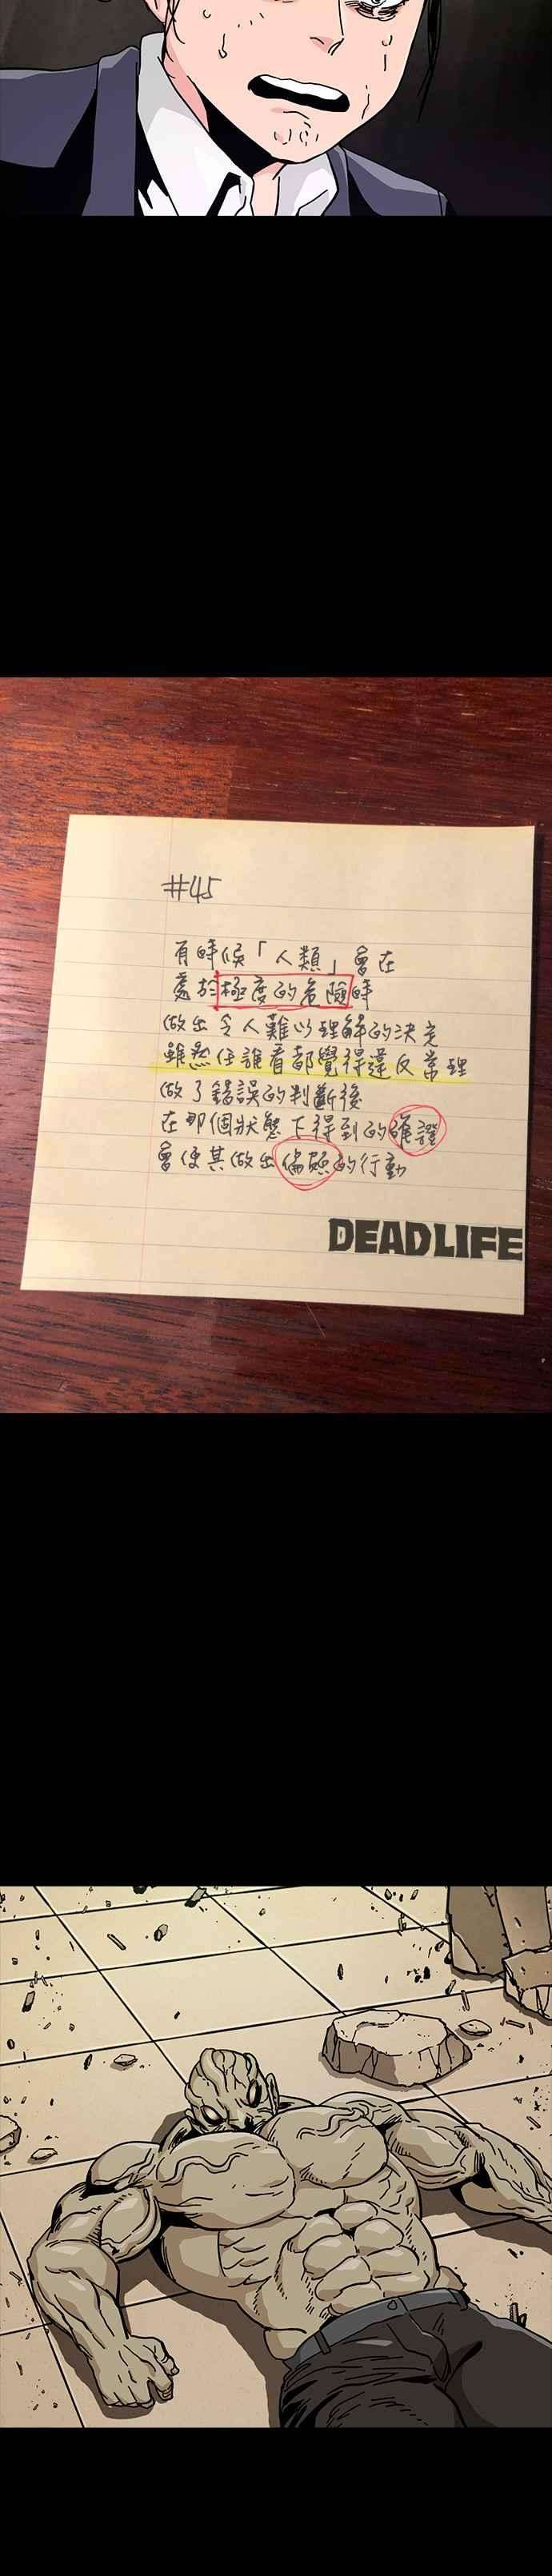 #45
有時候「人類」會在
處於極度的危險時
做出令人難以理解的決定
雖然任誰看都覺得違反常理
做了錯誤的判斷後
在那個狀態下得到的確證
會使其做出偏頗的行動
DEADLIFE